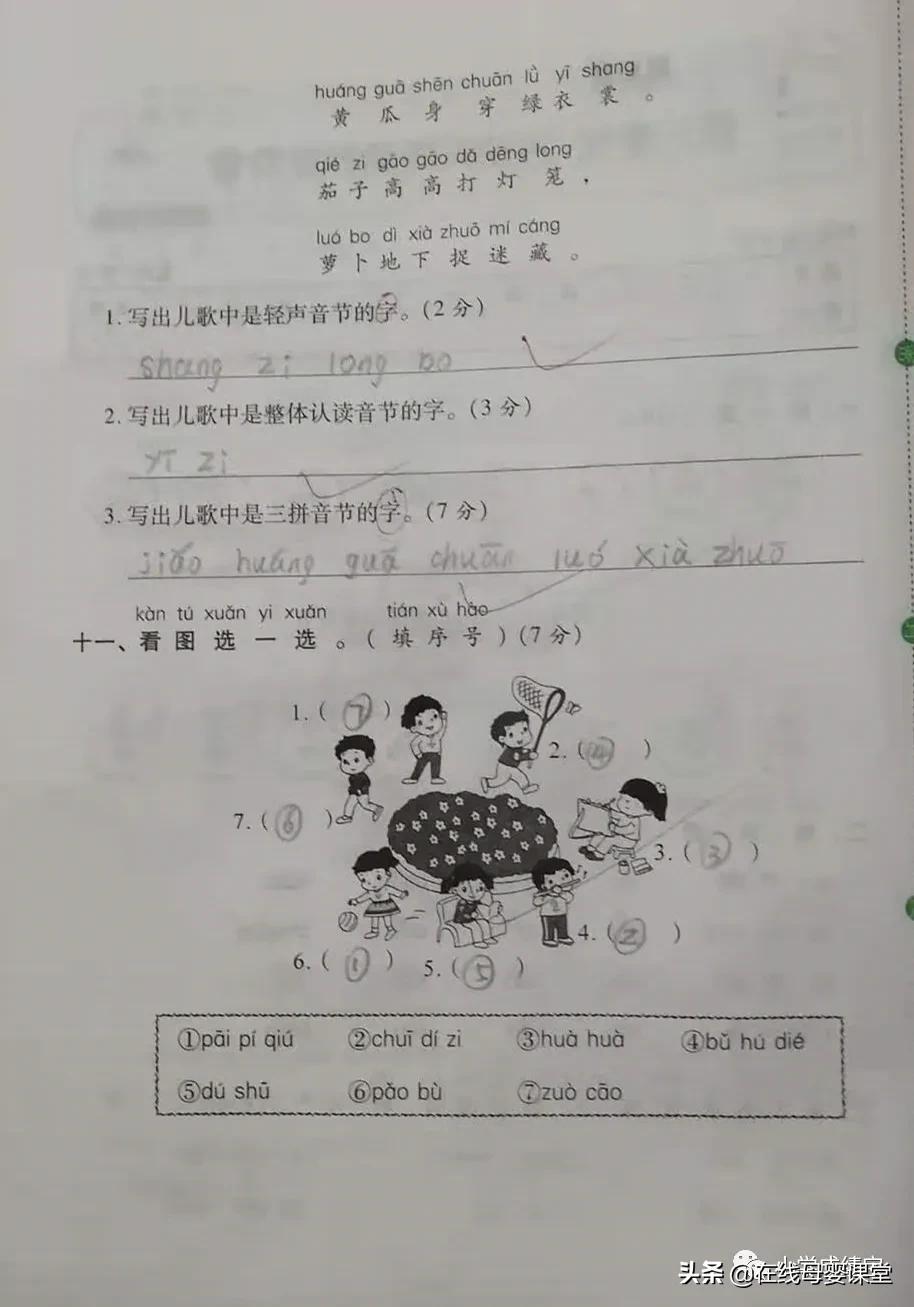 huáng guā shēn chuān lǜ yī shang
黄瓜身穿绿衣裳。
qié zi gāo gāo dǎ dēng long
茄子高高打灯笼，
luó bo dì xià zhuō mí cáng
萝卜地下捉迷藏。
1. 写出儿歌中是轻声音节的字。(2分)
shang zi long bo
2. 写出儿歌中是整体认读音节的字。(3分)
yī zi
3. 写出儿歌中是三拼音节的字。(7分)
jiāo huáng guā chuān luó xià zhuō
kàn tú xuǎn yi xuǎn tián xù hào
十一、看图选一选。(填序号)(7分)
1. (7)
2. (4)
7. (6)
3. (3)
4. (2)
6. (1) 5. (5)
①pāi pí qiú ②chuī dí zi ③huà huà ④bǔ hú dié
⑤dú shū ⑥pǎo bù ⑦zuò cāo
头条 @在线母婴课堂